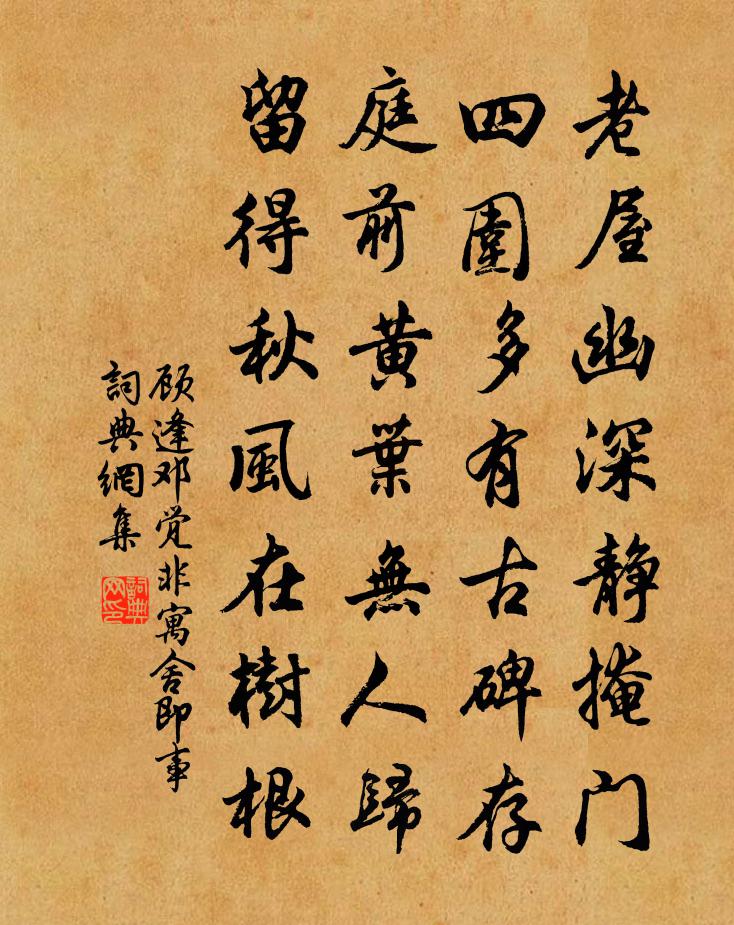 老屋幽深静掩门
四圍多有古碑存
庭前黄葉無人歸
留得秋風在樹根
顾逢邓觉非寓舍即事
詞典網集
詞典网印